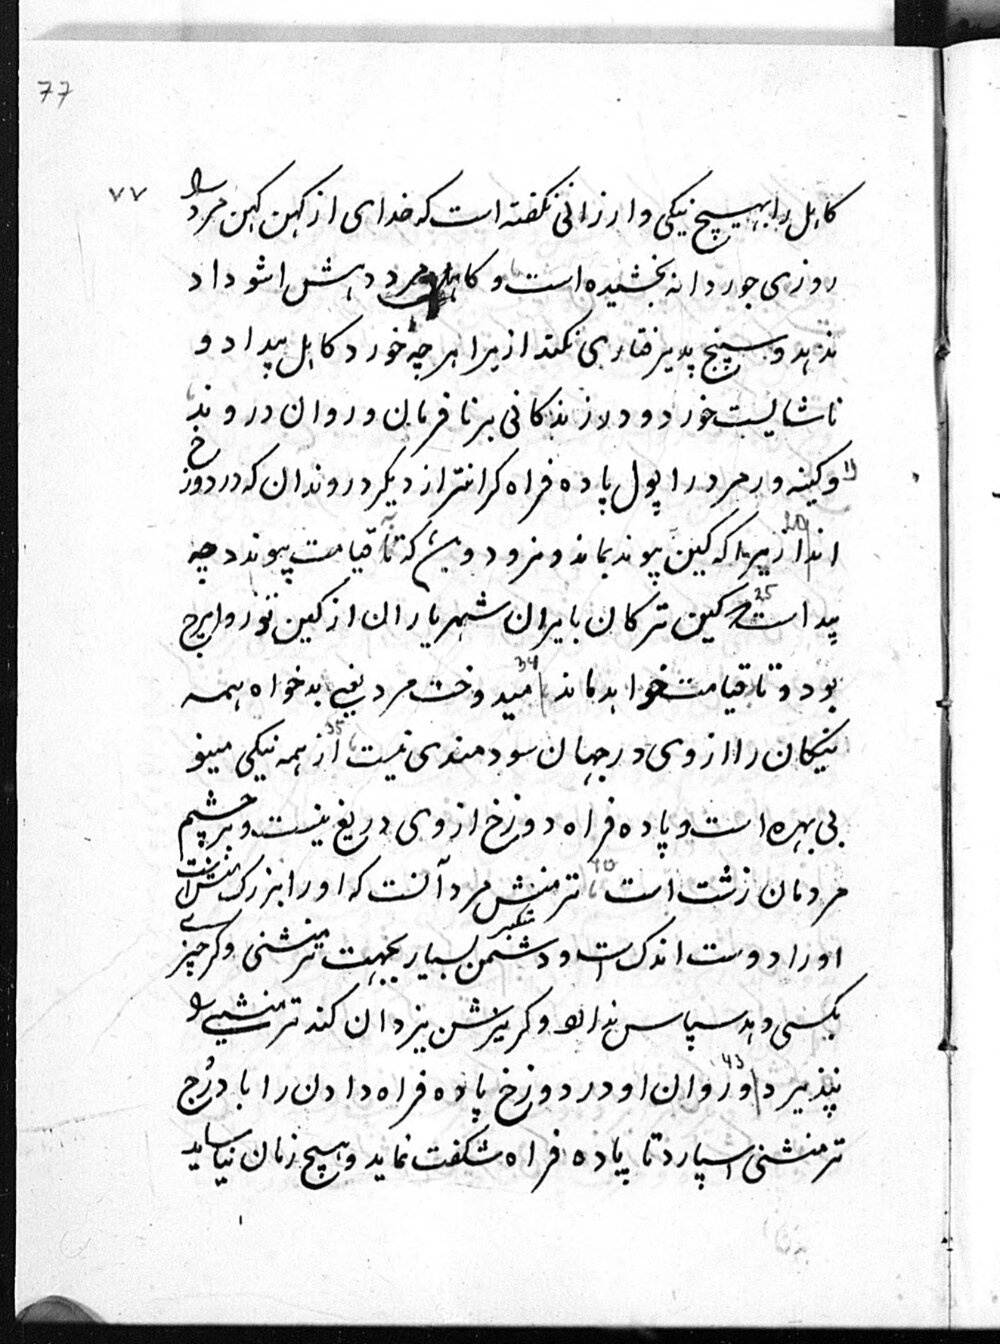 77
۷۷
کاهل را بهیچ نیکی و ارزانی نکفته است که خدای از کهن کهن مرد را
روزی جوردانه بخشیده است و کاهل مرد دهش اشو داد
ندهد و سپنج پدیرفتاری نکند ازیرا هر چه خورد کاهل بیداد و
ناشایست خورد و دلاز ندکانی برنا فرمان و روان دروند
11 و کینه ور مرد را پول پاده فراه کرانتر از دیکر دروندان که در دوزخ
20 اند ازیرا که کین پیوند بماند و نرود و ببین که تا قیامت پیوندد چه
25 پیداست کین ترکان بایران شهریاران از کین تور و ایرج
34 بود و تا قیامت خواهد ماند مید وخت مرد یعنی بدخواه همه
35 نیکان را از وی در جهان سودمندی نیست از همه نیکی مینو
بی بهره است و پاده فراه دوزخ از وی دریغ نیست و بر چشم
40 مردمان زشت است تر منش مرد آنست که او را بزرک منش است
متکبر
او را دوست اندک است و دشمن بسیار بجهت تر منشنی و کر چیزے
بکسی دهد سپاس نداند و کر یزشن یزدان کند تر منشنی را
43 نپذیرد و روان او در دوزخ پاده فراه دادن را با درُج
تر منشنی اسپارد تا پاده فراه شکفت نماید و هیچ زمان نیاساید